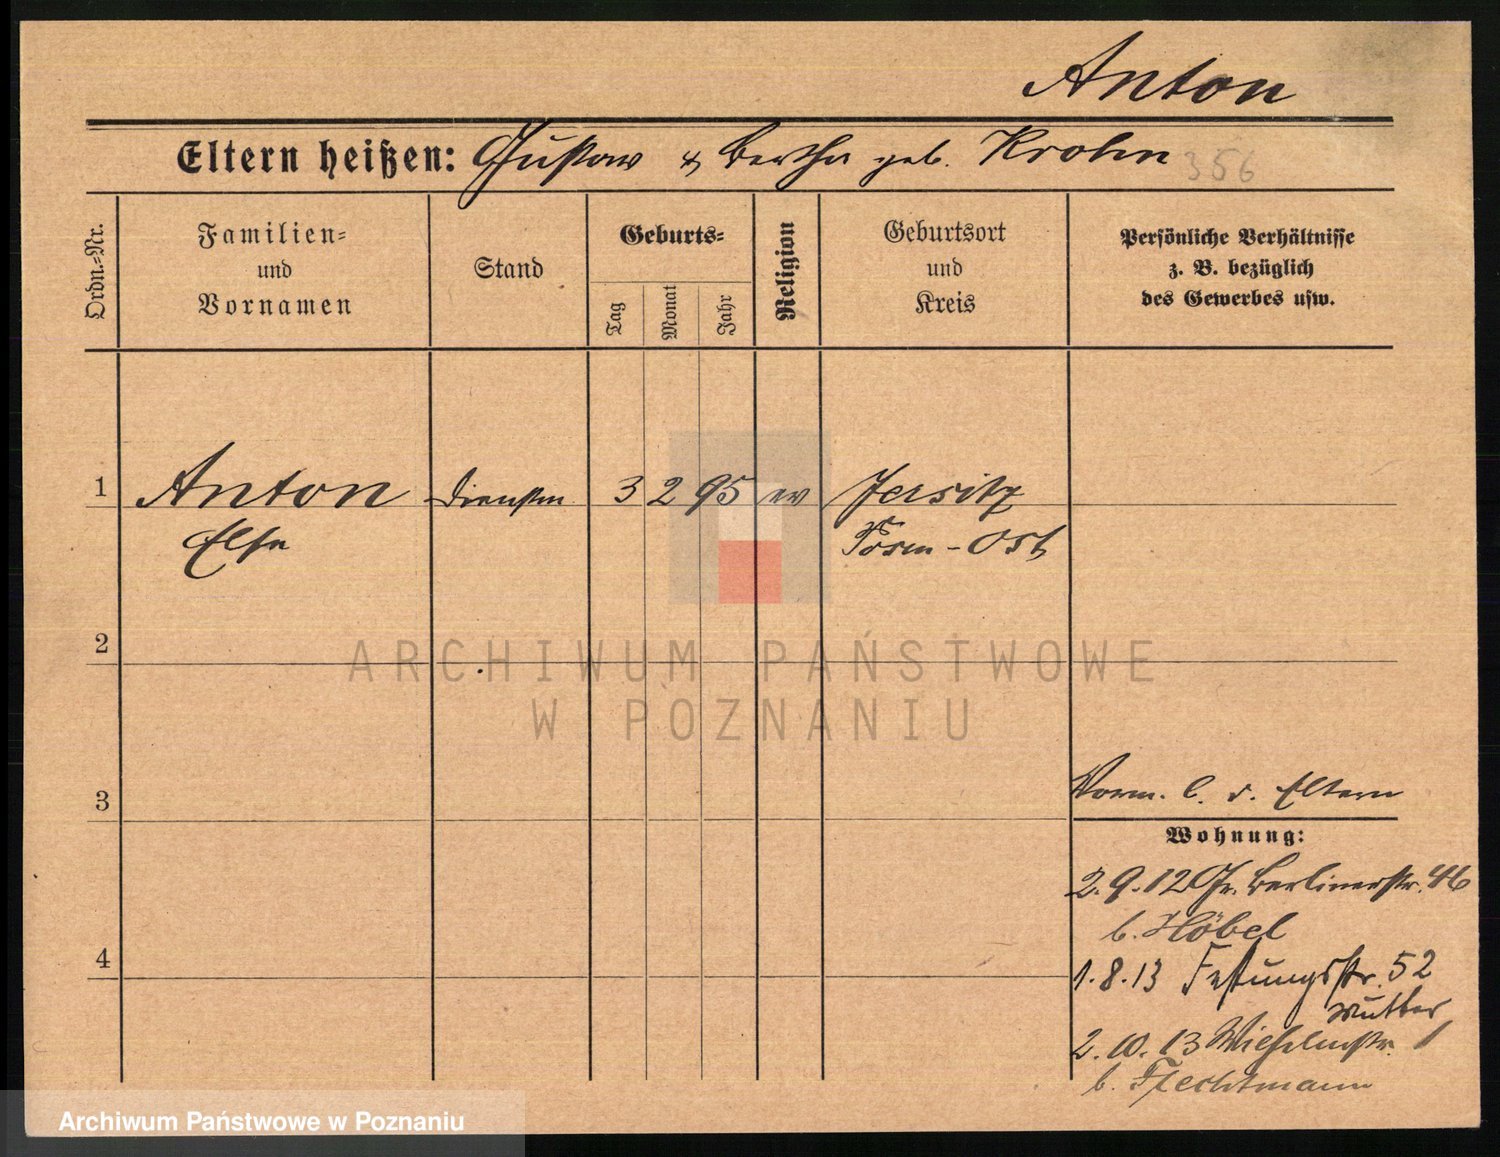 Anton
Eltern heißen: Gustav & Bertha geb. Krohn 356
Ordn.=Nr.
Familien= und Vornamen
Stand
Geburts=
Tag
Monat
Jahr
Religion
Geburtsort und Kreis
Persönliche Verhältnisse z. B. bezüglich des Gewerbes usw.
1 Anton Dienstm. 3 2 95 ev Jersitz
Else Posen-Ost
ARCHIWUM PAŃSTWOWE
W POZNANIU
2
3
Vorm. b. d. Eltern
Wohnung:
2.9.12 Gr. Berlinerstr. 46
b. Höbel
4
1.8.13 Festungsstr. 52
Mutter
2.10.13 Wilhelmstr. 1
b. Flechtmann
Archiwum Państwowe w Poznaniu